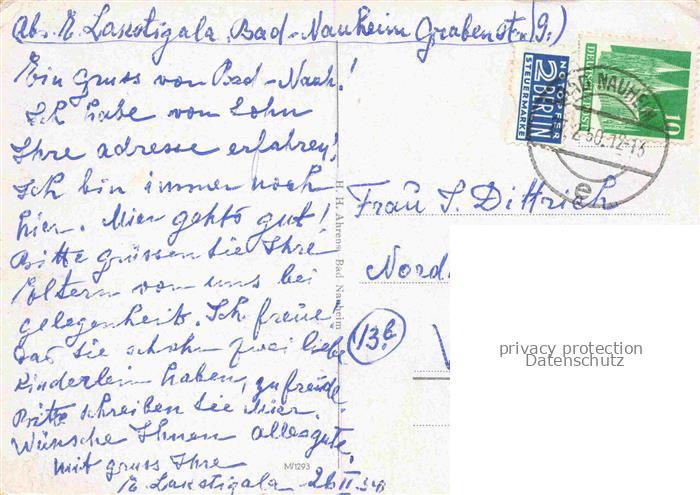 Abs. E. Lakstigala, Bad-Nauheim Grabenstr. 19.)
Ein Gruss von Bad-Nauh.!
Ich habe vom Sohn
Ihre adresse erfahren!
Ich bin immer noch
hier. Mier gehts gut!
Bitte grüssen Sie Ihre
Eltern von uns bei
gelegenheit. Ich freue!
das Sie schohn zwei liebe
Kinderlein haben, zu freude.
Bitte schreiben Sie Mier.
Wünsche Ihnen alles gute.
mit gruss Ihre
E. Lakstigala
H. H. Ahrens, Bad Nauheim
M/1293
NOTOPFER
2 BERLIN
STEUERMARKE
10
BAD NAUHEIM
2.50.12-13
e
Frau S. Dittrich
Nord
13b
privacy protection
Datenschutz